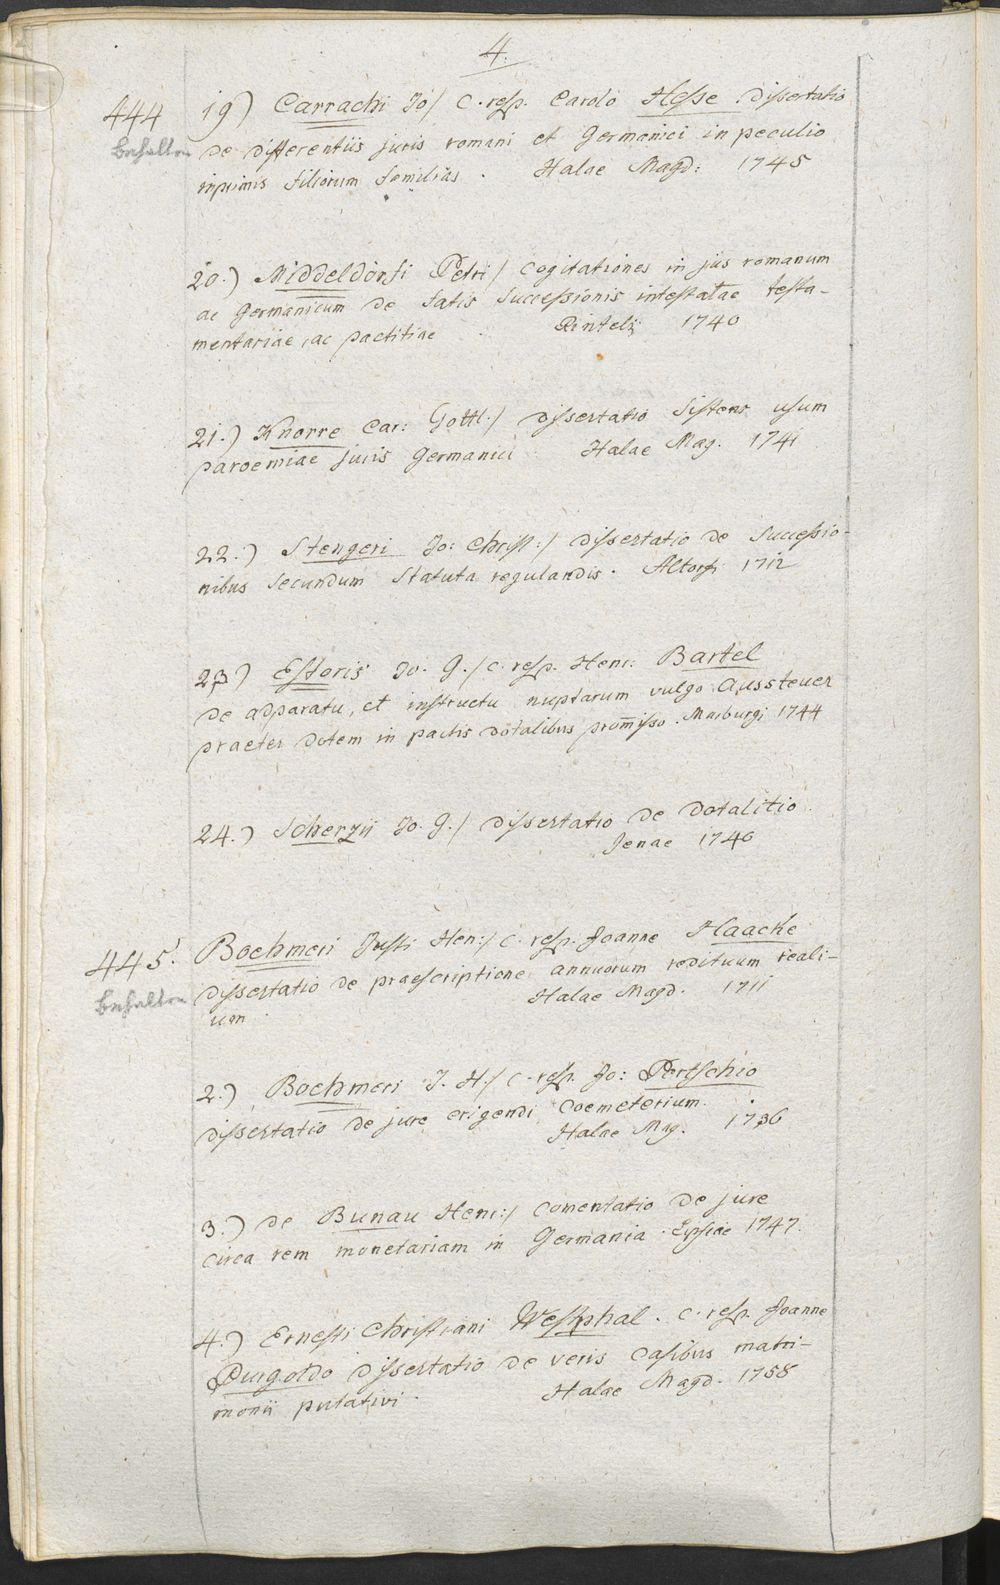 4.
444 19) Carrachi Jo/ C. resp. Carolo Hesse dissertatio
behalten de differentiis juris romani et Germanici in peculio
inprimis filiorum familias. Halae Magd: 1745
20.) Middeldorfi Petri/ Cogitationes in jus romanum
ac Germanicum de fatis successionis intestatae testa-
mentariae, ac pactitiae Rintelii 1740
21.) Knorre Car: Gottl:/ dissertatio sistens usum
paroemiae juris Germanici Halae Mag. 1741
22.) Stengeri Jo: Christ:/ dissertatio de Successio-
nibus secundum statuta regulandis. Altorfi 1712
23) Estoris Jo. G./ c. resp. Henr: Bartel
de adparatu, et instructu nuptarum vulgo Aussteuer
praeter dotem in pactis dotalibus prom̄isso. Marburgi 1744
24.) Scherzii Jo. G./ dissertatio de Dotalitio
Jenae 1746
445. Boehmeri Justi Hen:/ c. resp. Joanne Haacke
dissertatio de praescriptione annuorum redituum reali-
behalten um Halae Magd. 1711
2.) Boehmeri J. H./ c. resp. Jo: Pertschio
dissertatio de jure erigendi Coemeterium.
Halae Mag. 1736
3.) de Bunau Henr:/ Comentatio de jure
circa rem monetariam in Germania. Lipsiae 1747.
4.) Ernesti Christiani Westphal. c. resp. Joanne
Purgoldo dissertatio de veris Casibus matri-
monii putativi. Halae Magd. 1758